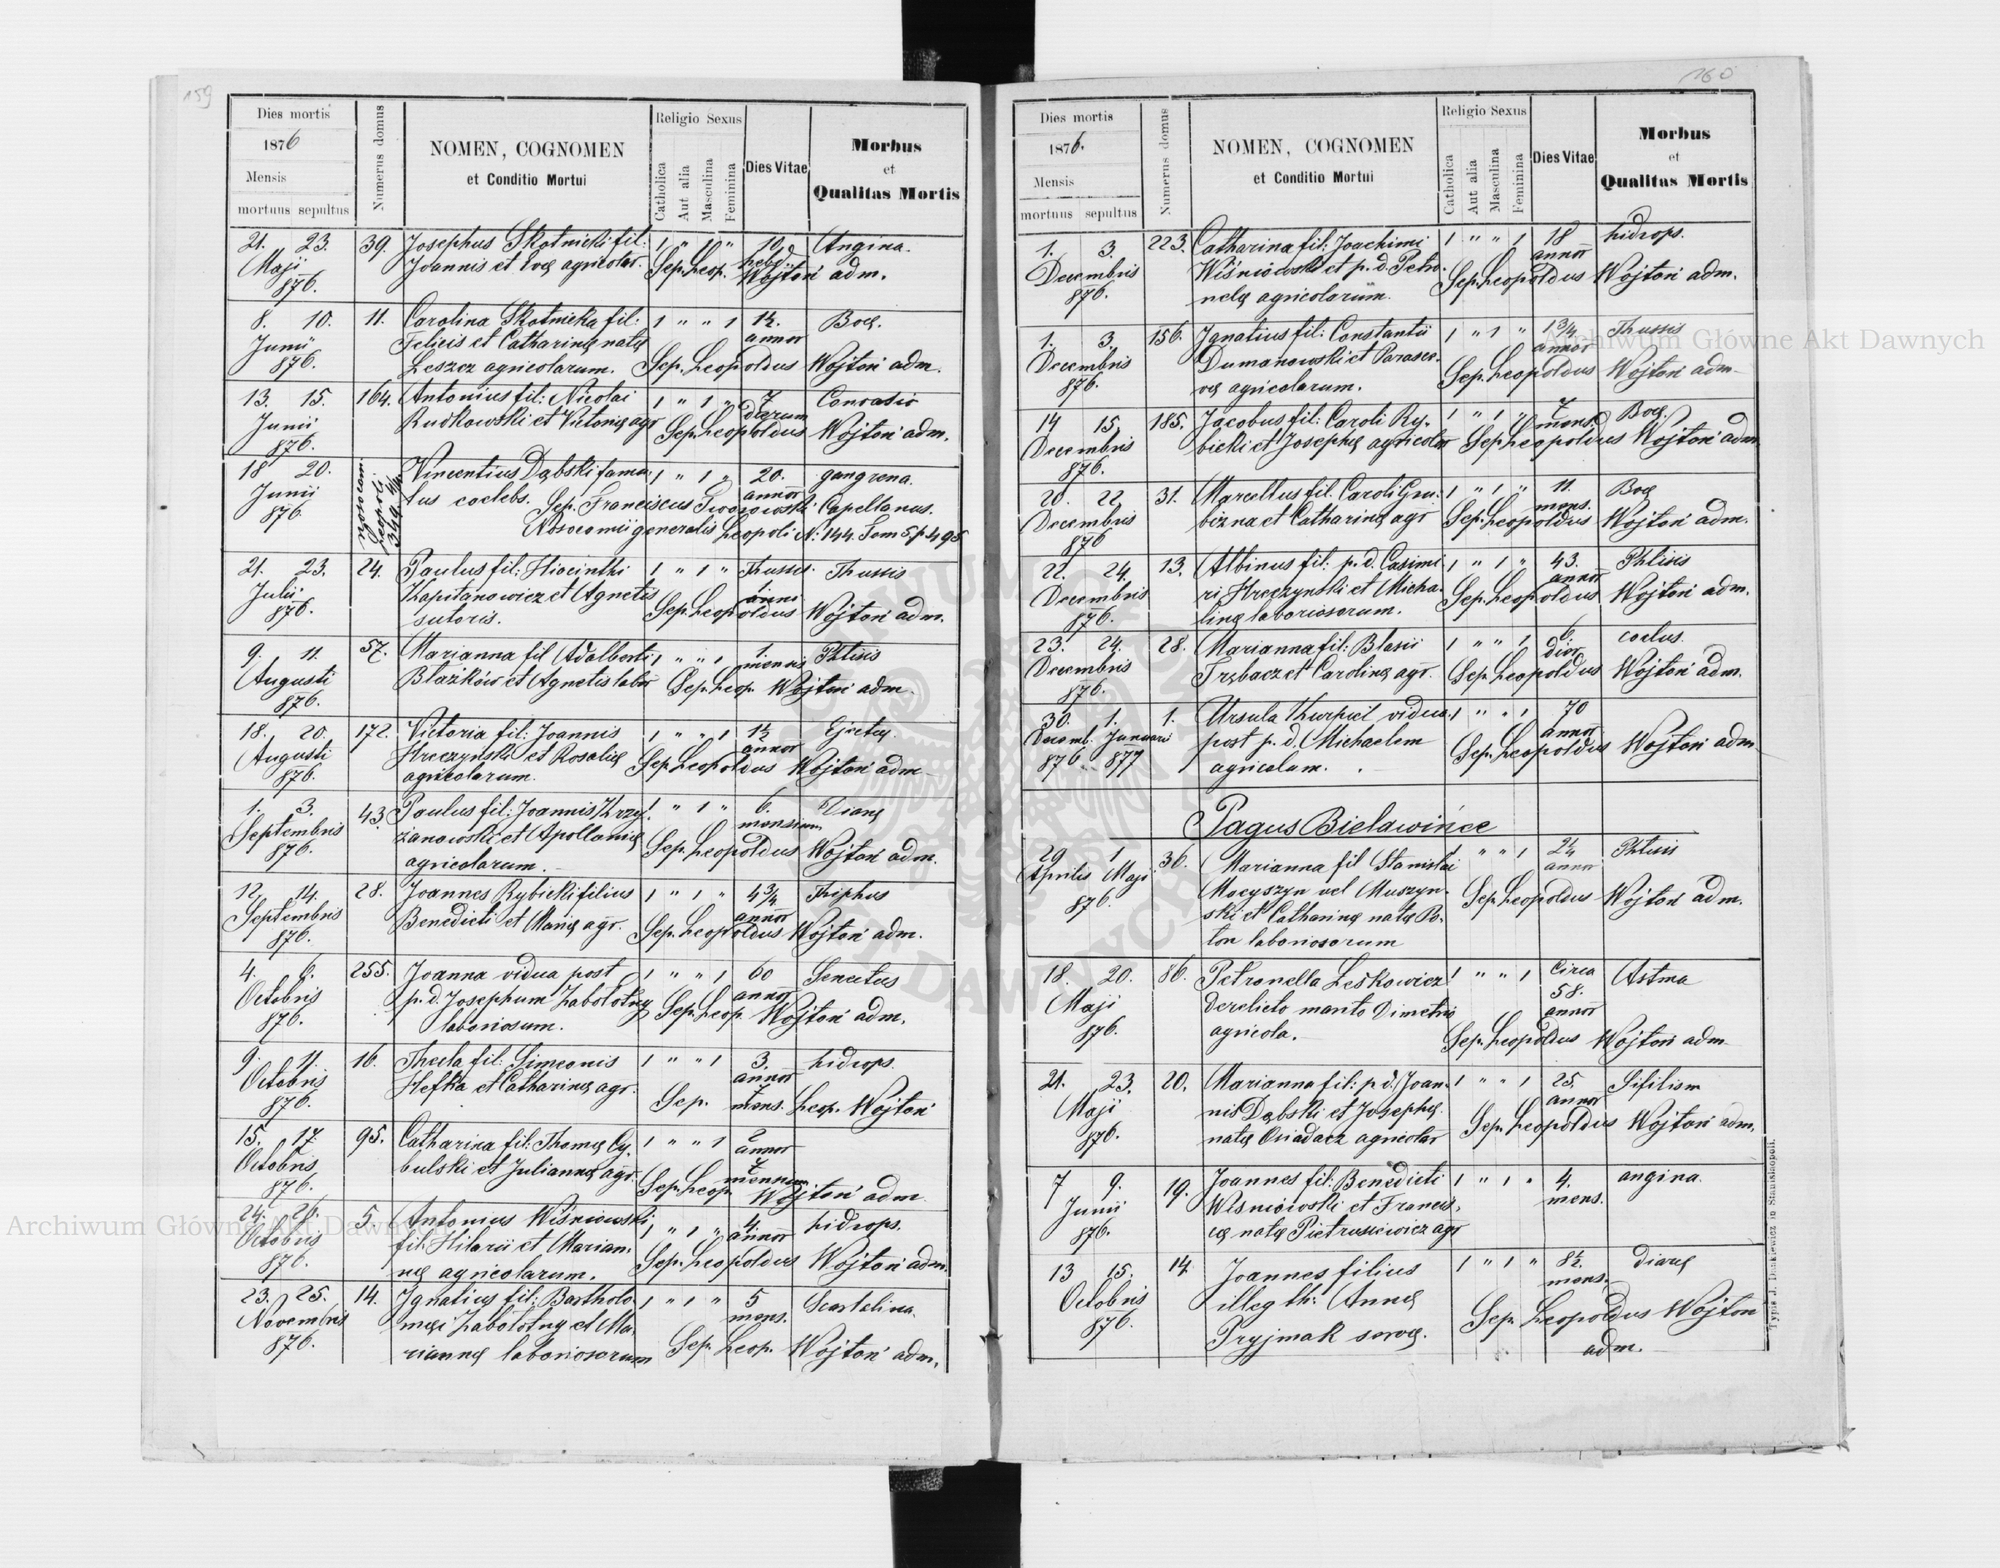 159
Dies mortis
1876
Mensis
mortuus sepultus
Numerus domus
NOMEN, COGNOMEN
et Conditio Mortui
Religio Sexus
Catholica
Aut alia
Masculina
Feminina
Dies Vitae
Morbus
et
Qualitas Mortis
21. 23. 39. Josephus Skotnicki fil: 1 " 1 " 10 Angina.
Maji Joannis et Evę agricolar. Sep. Leop. hebd. Wojtoń adm.
876.
8. 10. 11. Carolina Skotnicka fil: 1 " " 1 1½ Boeg.
Junii Felicis et Catharinę natę annor
876. Leszcz agricolarum. Sep. Leopoldus Wojtoń adm.
13. 15. 164. Antonius fil: Nicolai 1 " 1 " 7
Junii Rudkowski et Victorię agr dierum Sep. Leopoldus Wojtoń adm.
876.
18 20. Vincentius Dąbski famu: 1 " 1 " 20. gangrena.
Junii tus coelebs. Sep. Franciscus annor Capellanus.
876 Nosocomii generalis Leopoli N: 144 Tom 5 p 495
21. 23. 24. Paulus fil: Hiacinthi 1 " 1 " Thussis. Thussis
Julii Kapitanowicz et Agnetis anni
876. sutoris. Sep. Leopoldus Wojtoń adm.
9. 11. 57. Marianna fil Adalberti 1 " " 1 1. Phtisis
Augusti Blażków et Agnetis labor mensis Sep. Leop. Wojtoń adm.
876.
18. 20. 172. Victoria fil: Joannis 1 " " 1 1½
Augusti Hreczynski et Rosalię annor
876. agricolarum. Sep. Leopoldus Wojtoń adm
1. 3. 43. Paulus fil: Joannis Krzy: 1 " 1 " 6. Diarę
Septembris zanowski et Apollonię mensium
876. agricolarum. Sep. Leopoldus Wojtoń adm.
12. 14. 28. Joannes Rybicki filius 1 " 1 " 4¾ Thiphus
Septembris Benedicti et Marię agr. annor
876. Sep. Leopoldus Wojtoń adm.
4. 6. 255. Joanna vidua post 1 " " 1 60 Senectus
Octobris p. d. Josephum Zabołotny annor
876. laboriosum. Sep. Leop. Wojtoń adm.
9. 11. 16. Thecla fil: Simeonis 1 " " 1 3. hidrops.
Octobris Hefka et Catharinę agr. annor
876. Sep. mens. Leop. Wojtoń
15. 17. 95. Catharina fil: Thomę Cy: 1 " " 1 2
Octobris bulski et Juliannę agr. annor 7 mensium
876. Sep. Leop. Wojtoń adm
24. 26. 5. Antonius Wiśniowski 1 " 1 " 4. hidrops.
Octobris fil: Hilarii et Marian: annor
876. nę agricolarum. Sep. Leopoldus Wojtoń adm.
23. 25. 14. Ignatius fil: Bartholo 1 " 1 " 5 Scartalina.
Novembris męi Zabołotny et Ma: mens.
876. riannę laboriosorum Sep. Leop. Wojtoń adm.
160
Dies mortis
1876.
Mensis
mortuus sepultus
Numerus domus
NOMEN, COGNOMEN
et Conditio Mortui
Religio Sexus
Catholica
Aut alia
Masculina
Feminina
Dies Vitae
Morbus
et
Qualitas Mortis
1. 3. 223. Catharina fil: Joachimi 1 " " 1 18 hidrops.
Decembris Wiśniowski et p. d. Petro: annor
876. nelę agricolarum. Sep. Leopoldus Wojtoń adm.
1. 3. 156. Ignatius fil: Constantii 1 " 1 " 1¾ Thussis
Decembris Dumanowski et Parasce: annor
876. vę agricolarum. Sep. Leopoldus Wojtoń adm
14 15. 185. Jacobus fil: Caroli Ry: 1 " 1 " 7 Boeg.
Decembris bicki et Josephę agricolar mens. Sep. Leopoldus Wojtoń adm
876.
20. 22. 31. Marcellus fil. Caroli Gru: 1 " 1 " 11. Boeg
Decembris bizna et Catharinę agr mens. Sep. Leopoldus Wojtoń adm.
876
22. 24. 13. Albinus fil: p. d. Casimi 1 " 1 " 43. Phtisis
Decembris ri Hreczynski et Micha: annor
876. linę laboriosorum. Sep. Leopoldus Wojtoń adm.
23. 24. 28. Marianna fil: Blasii 1 " " 1 6. coelus.
Decembris Trębacz et Carolinę agr. dier Sep. Leopoldus Wojtoń adm.
876.
30. 1. 1. Ursula Kurpiel vidua 1 " " 1 70
Decemb. Januarii post p. d. Michaelem annor
876 877 agricolam. Sep. Leopoldus Wojtoń adm
Pagus Bielawińce
29 1 36. Marianna fil Stanislai 1 " " 1 2¼ Phtisis
Aprilis Maji Moczyszyn vel Muszyn: annor
876. ski et Catharinę natę Bo: Sep. Leopoldus Wojtoń adm.
ton laboriosorum
18. 20. 86. Petronella Leśkowicz 1 " " 1 Circa Astma
Maji derelicto marito Dimetrio 58. annor
876. agricola. Sep. Leopoldus Wojtoń adm
21. 23. 20. Marianna fil: p. d. Joan: 1 " " 1 25. Sifilism
Maji nis Dąbski et Josephę annor
876. natę Osiadacz agricolar Sep. Leopoldus Wojtoń adm.
7 9. 19. Joannes fil: Benedicti 1 " 1 " 4. angina.
Junii Wiśniowski et Francis: mens.
876. cę natę Pietrusiewicz agr
13 15. 14. Joannes filius 1 " 1 " 8½ diarę
Octobris illeg th: Annę mens.
876. Pryjmak servę. Sep. Leopoldus Wojtoń
adm.
Typis J. Dankiewicz in Stanislaopoli.
Archiwum Główne Akt Dawnych
Archiwum Główne Akt Dawnych